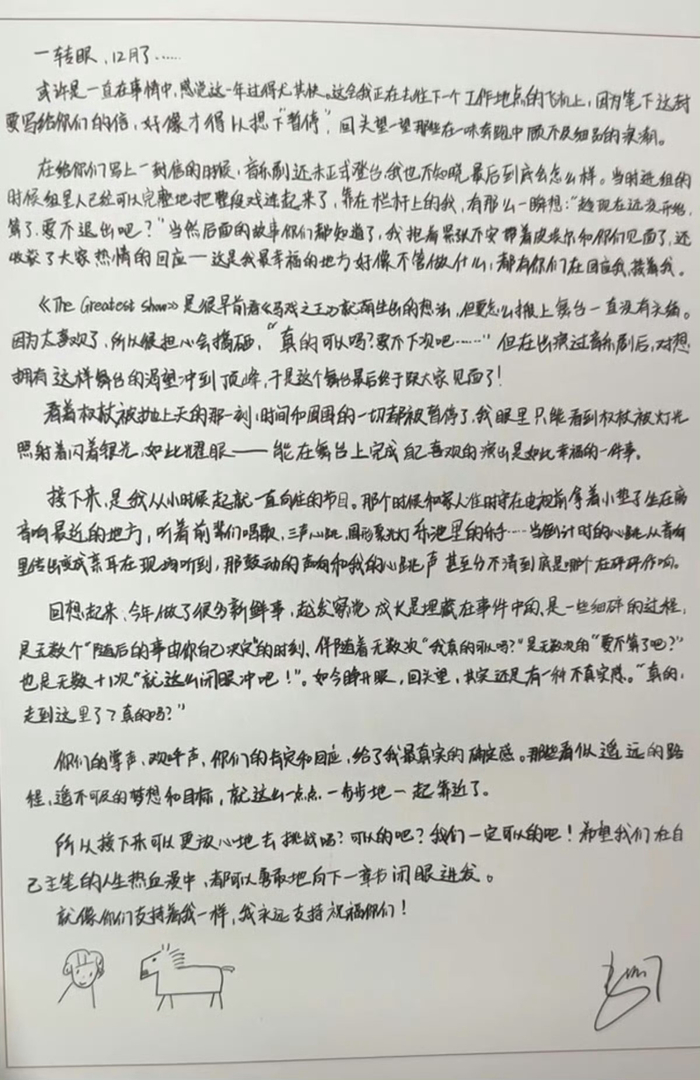 一转眼，12月了……
或许是一直在事情中，感觉这一年过得尤其快。这会我正在去往下一个工作地点的飞机上，因为笔下这封
要写给你们的信，好像才得以摁下“暂停”，回头望一望那些在一味奔跑中顾不及细品的浪潮。
在给你们写上一封信的时候，音乐剧还未正式登台，我也不知晓最后到底会怎么样。当时进组的
时候组里人已经可以完整地把整段戏连起来了，靠在栏杆上的我，有那么一瞬想：“趁现在还没开始，
算了，要不退出吧？”当然后面的故事你们都知道了，我抱着紧张不安带着皮埃尔和你们见面了，还
收获了大家热情的回应——这是我最幸福的地方好像不管做什么，都有你们在回应我，接着我。
《The Greatest show》是很早前看《马戏之王》就萌生出的想法，但要怎么搬上舞台一直没有头绪。
因为太喜欢了，所以很担心会搞砸，“真的可以吗？要不下次吧……”但在出演过音乐剧后，对想
拥有这样舞台的渴望冲到顶峰，于是这个舞台最终于跟大家见面了！
看着权杖被抛上天的那一刻，时间和周围的一切都被暂停了，我眼里只能看到权杖被灯光
照射着闪着银光，如此耀眼——能在舞台上完成自己喜欢的演出是如此幸福的一件事。
接下来，是我从小时候起就一直向往的节目。那个时候和家人准时守在电视前拿着小垫子坐在离
音响最近的地方，听着前辈们唱歌，三声心跳，圆形聚光灯，……当倒计时的心跳从音响
里传出变成亲耳在现场听到，那鼓动的声响和我的心跳声 甚至分不清到底是哪个在砰砰作响。
回想起来，今年做了很多新鲜事，越发察觉 成长是埋藏在事件中的，是一些细碎的过程，
是无数个“随后的事由你自己决定”的时刻，伴随着无数次“我真的可以吗？”是无数次的“要不算了吧？”
也是无数+1次“就这么闭眼冲吧！”。如今睁开眼，回头望，其实还是有一种不真实感。“真的，
走到这里了？真的吗？”
你们的掌声，欢呼声，你们的肯定和回应，给了我最真实的确定感。那些看似遥远的路
程，遥不可及的梦想和目标，就这么一点点，一步步地一起靠近了。
所以接下来可以更放心地去挑战吗？可以的吧？我们一定可以的吧！希望我们在自
己主笔的人生热血漫中，都可以勇敢地向下一章书闭眼进发。
就像你们支持着我一样，我永远支持祝福你们！